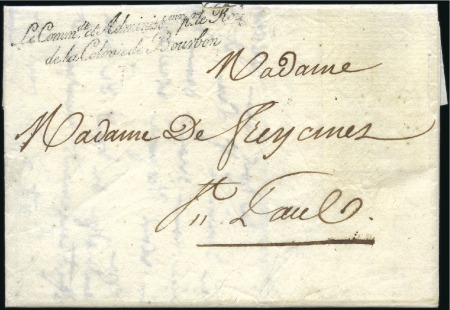 Le Comm.dt et Administ.eur p.r le Roi
de la Colonie de Bourbon
Madame
Madame De Freycinet
St Paul.